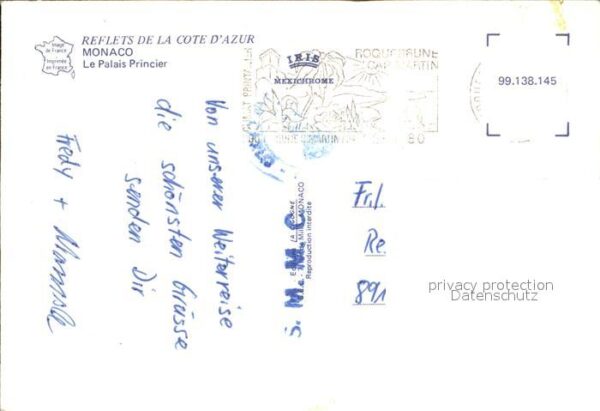 Image
de France
Imprimée
en France
REFLETS DE LA COTE D'AZUR
MONACO
Le Palais Princier
IRIS
MEXICHROME
ROQUEBRUNE
CAP MARTIN
99.138.145
Von unserer Weiterreise
die schönsten Grüsse
senden Dir
Fredy +
LA
MONACO
Reproduction interdite
Frl.
Re.
891
privacy protection
Datenschutz